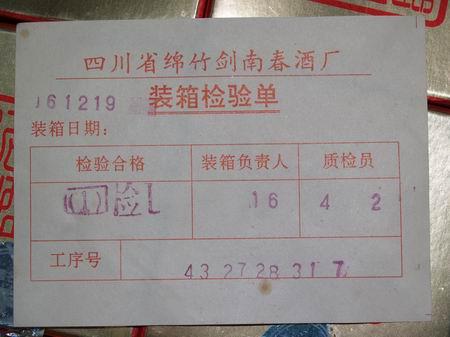 四川省绵竹剑南春酒厂
161219 装箱检验单
装箱日期：
检验合格 装箱负责人 质检员
(1) 检 16 4 2
工序号 43 27 28 31 7